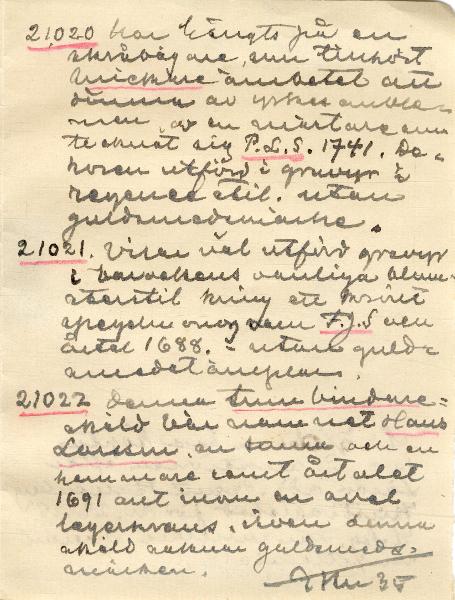 21,020 har hängts på en
skråbägare, som tillhört
snickare ämbetet att
dömma av yrkes emble-
men, av en mästare som
tecknat sig P.L.S. 1741. De-
koren utförd i gravyr i
regence stil. utan
guldsmedsmärke.
21021. Visar väl utförd gravyr
i barockens vanliga blom-
sterstil kring ett krönt
spegelmonogram F.J.S och
årtal 1688. - utan guld-
smedstämplar.
21022 Denna tunnbindare-
sköld bär namnet Hans
Larson, en tunna och en
hammare samt årtalet
1691 allt inom en oval
lagerkrans. även denna
sköld saknar guldsmeds-
märken.
35